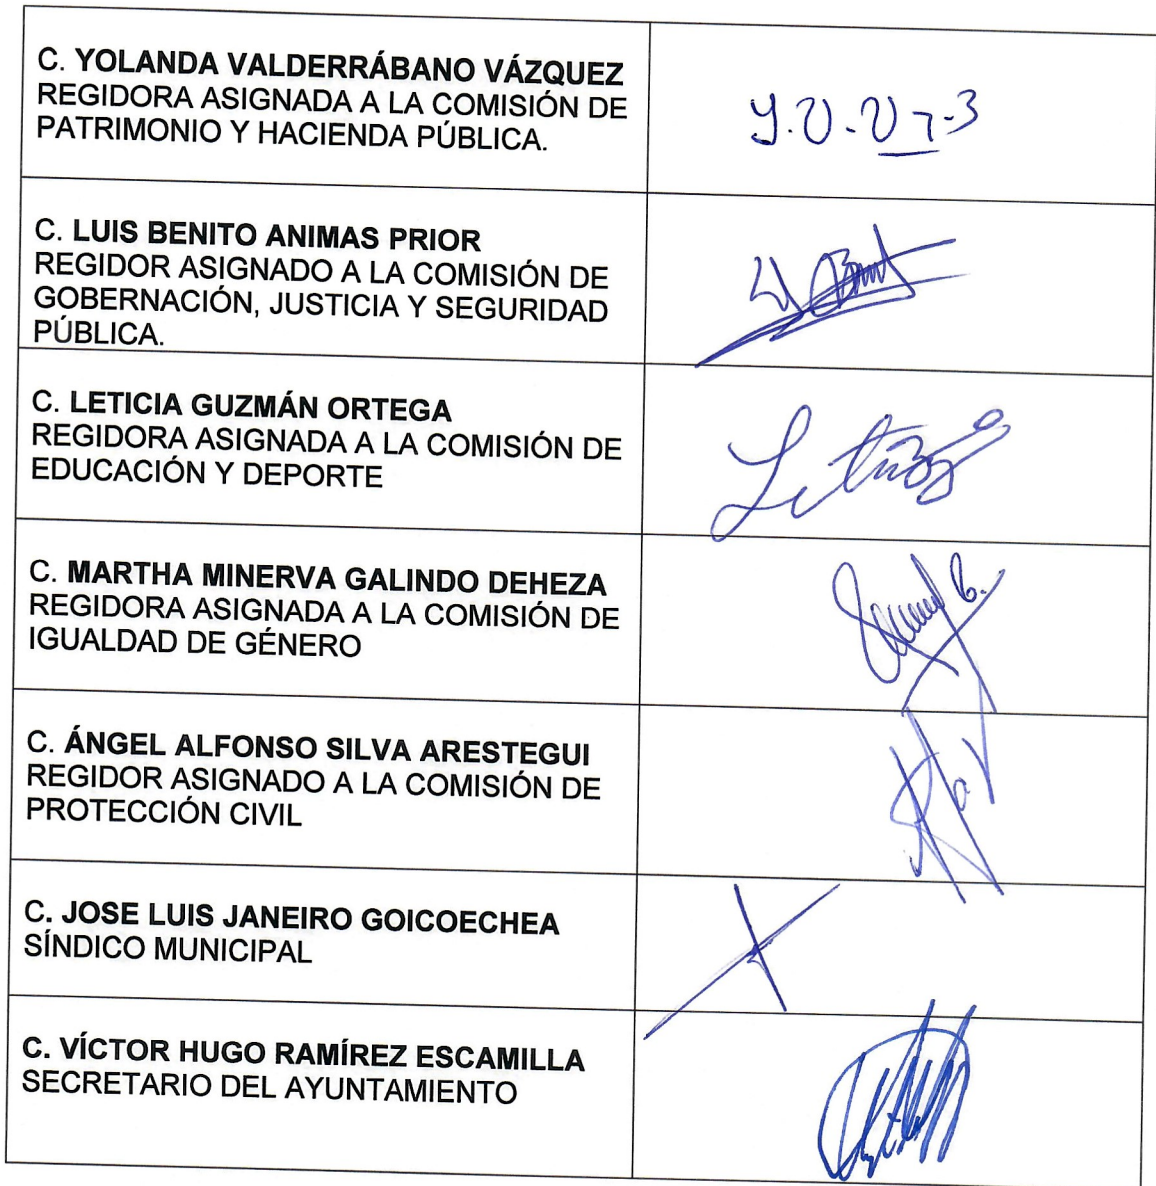 C. YOLANDA VALDERRÁBANO VÁZQUEZ
REGIDORA ASIGNADA A LA COMISIÓN DE
PATRIMONIO Y HACIENDA PÚBLICA.
C. LUIS BENITO ANIMAS PRIOR
REGIDOR ASIGNADO A LA COMISIÓN DE
GOBERNACIÓN, JUSTICIA Y SEGURIDAD
PÚBLICA.
C. LETICIA GUZMÁN ORTEGA
REGIDORA ASIGNADA A LA COMISIÓN DE
EDUCACIÓN Y DEPORTE
C. MARTHA MINERVA GALINDO DEHEZA
REGIDORA ASIGNADA A LA COMISIÓN DE
IGUALDAD DE GÉNERO
C. ÁNGEL ALFONSO SILVA ARESTEGUI
REGIDOR ASIGNADO A LA COMISIÓN DE
PROTECCIÓN CIVIL
C. JOSE LUIS JANEIRO GOICOECHEA
SÍNDICO MUNICIPAL
C. VÍCTOR HUGO RAMÍREZ ESCAMILLA
SECRETARIO DEL AYUNTAMIENTO